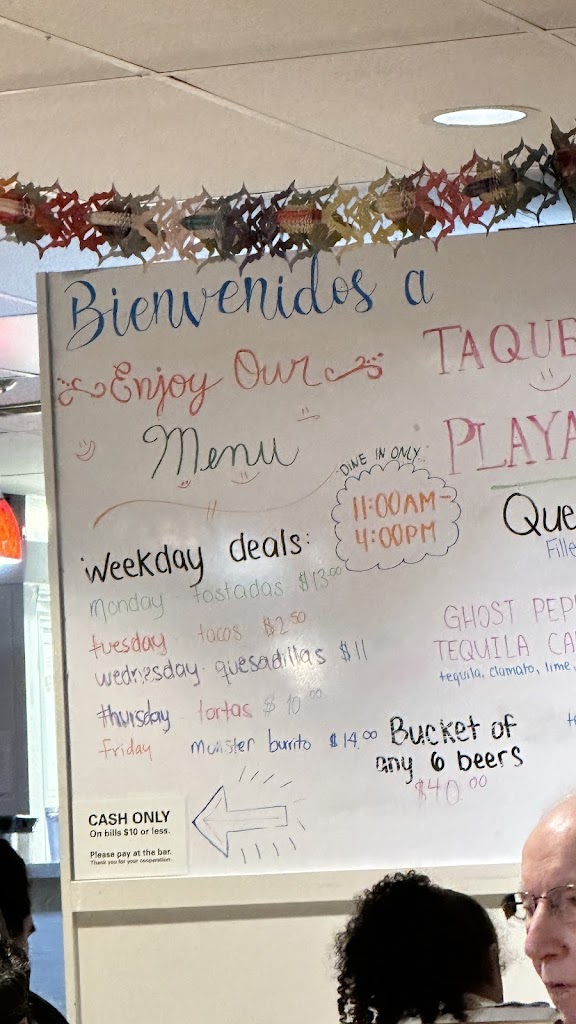 Bienvenidos a
Enjoy Our
Menu
DINE IN ONLY
11:00AM-
4:00PM
Weekday deals:
monday tostadas $13.00
tuesday tacos $2.50
wednesday quesadillas $11
thursday tortas $10.00
friday monster burrito $14.00
CASH ONLY
On bills $10 or less.
Please pay at the bar.
Thank you for your cooperation.
TAQUE
PLAYA
Que
Fille
GHOST PEPP
TEQUILA CA
tequila, clamato, lime,
Bucket of
any 6 beers
$40.00